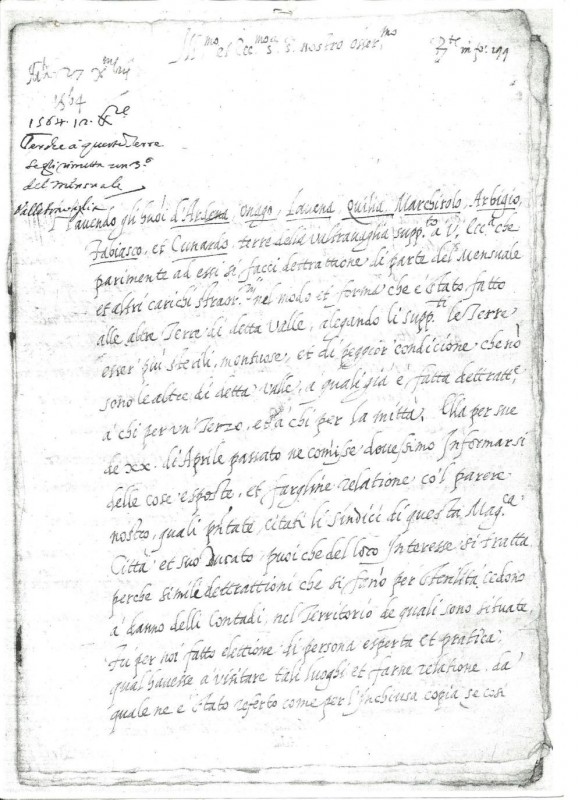 Ill.mo et Ecc.mo s. s. nostro osser.mo
R.te in fo. 199
27 X
1564
1564. 12. X.bre
Perche a queste Terre
se gli rimetta un 3.o
del mensuale
Valtravaglia
Havendo gli huoi d'Ardena, Voago, Lavena, Quilia, Marchirolo, Arbigio,
Fabiasco, et Cunardo, terre della Vultravaglia supp.to a V. Ecc.a che
parimente ad essi si facci dettrattione di parte del Mensuale
et altri carichi straor.rii nel modo et forma che è stato fatto
alle altre Terre di detta Valle, alegando li supp.ti le Terre
esser più sterili, montuose, et di peggior condicione che nō
sono le altre di detta Valle, a quali già è fatta dettratt.e
à chi per un Terzo, et à chi per la mittà, Ella per sue
de XX. di Aprile passato ne comise dovessimo Informarsi
delle cose esposte, et fargline relatione co'l parere
nostro, quali pntate, citati li sindici di questa Mag.ca
Città et suo Ducato puoi che del loco Interesse si tratta
perche simile dettrattioni che si fano per sterilità cedono
a danno delli Contadi, nel Territorio de quali sono situate,
Fu per noi fatto elettione di persona esperta et pratica
qual havesse a visitare tali luoghi et farne relatione, da
quale ne è stato referto come per l'Inchiusa copia, se così